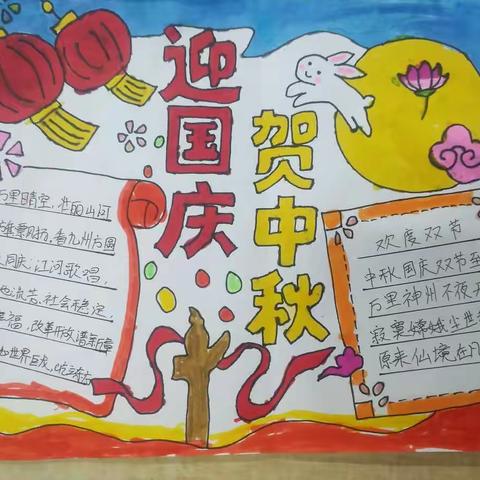 迎国庆
贺中秋
万里晴空，壮丽山河
飘扬，看九州方圆
同庆；江河歌唱，
社会稳定，
福，改革开放谱新篇
世界巨龙，屹立东方
欢度双节
中秋国庆双节至
万里神州不夜天
寂寞嫦娥尘世
原来仙境在凡